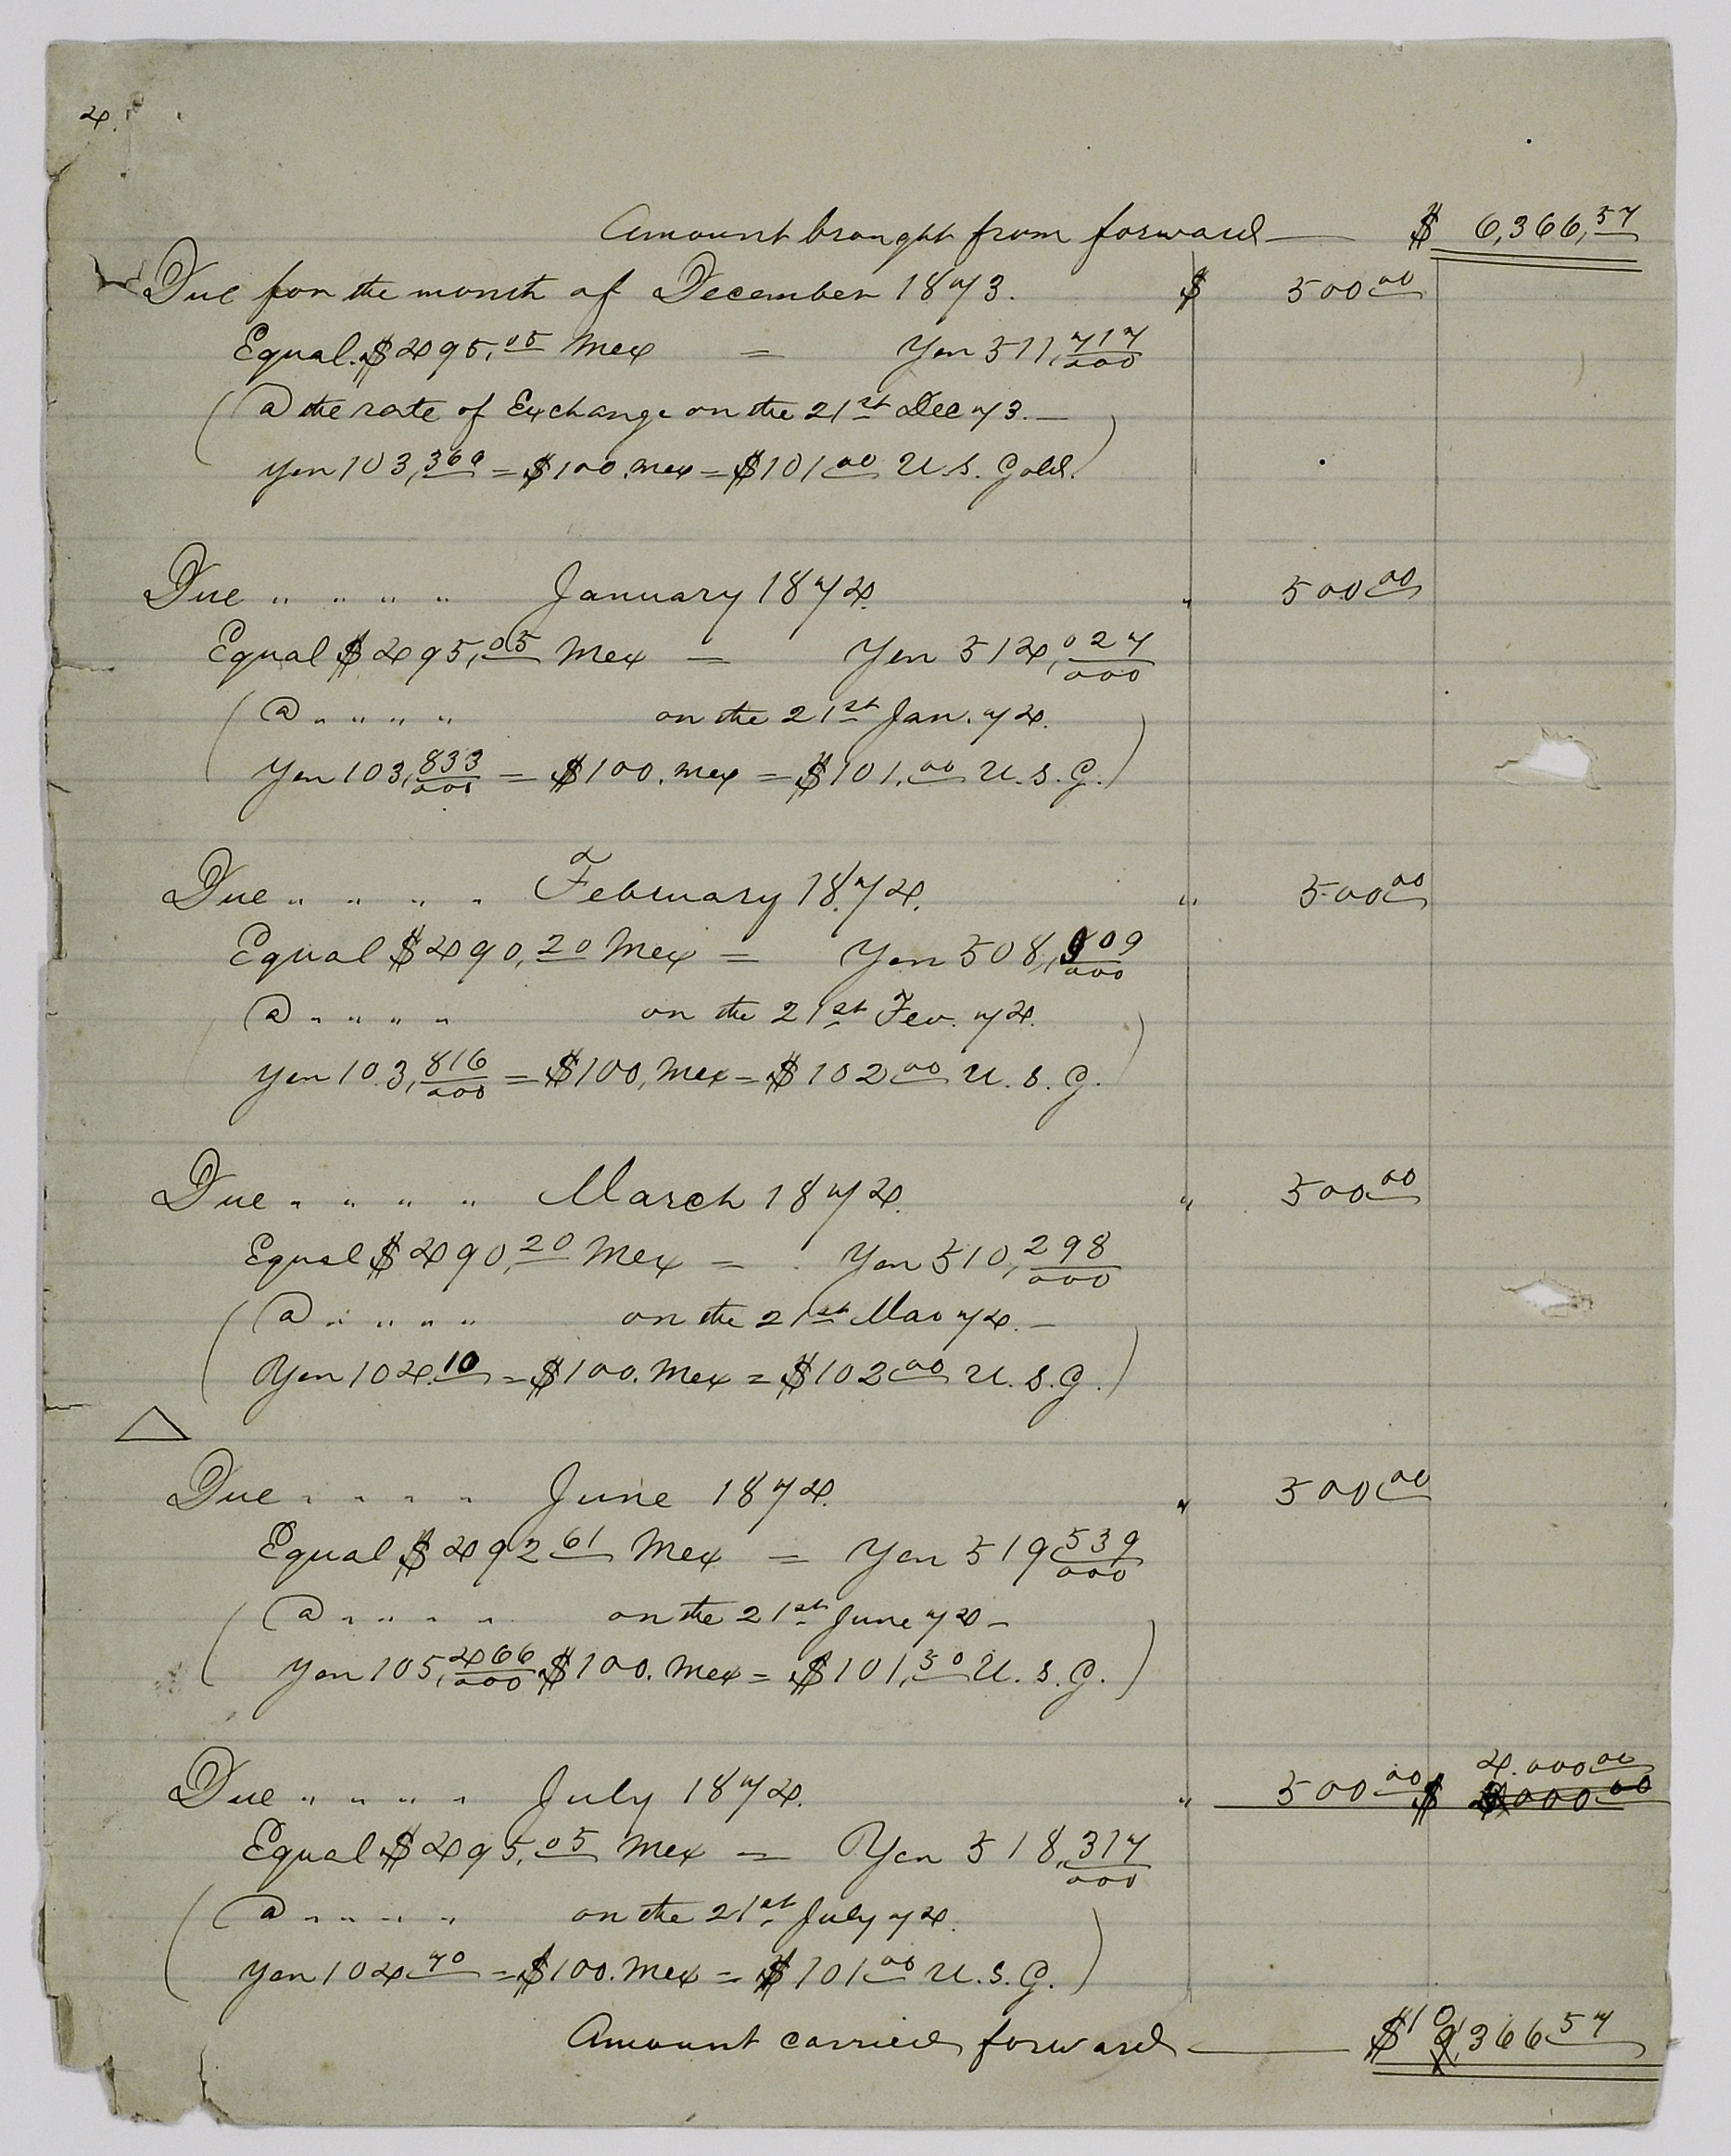 4.
Amount brought from forward — $ 6,366,57
Due for the month of December 1873. $ 500 00
Equal $495,05 Mex = Yen 511,717/000
(@ the rate of Exchange on the 21st Dec 73.—
Yen 103,360 = $100.Mex = $101 00 U.S. Gold.)
Due " " " " January 1874. " 500 00
Equal $495,05 Mex = Yen 514,027/000
(@ " " " " on the 21st Jan. 74.
Yen 103,833/000 = $100.Mex = $101.00 U.S.G.)
Due " " " " February 1874. " 500 00
Equal $490,20 Mex = Yen 508,909/000
@ " " " " on the 21st Fev. 74.
Yen 103,816/000 = $100,Mex = $102 00 U.S.G.)
Due " " " " March 1874. " 500 00
Equal $490,20 Mex = Yen 510,298/000
(@ " " " " on the 21st Mar 74.—
Yen 104.10 = $100.Mex = $102 00 U.S.G.)
Due " " " " June 1874. " 500 00
Equal $492 61 Mex = Yen 519 539/000
(@ " " " " on the 21st June 74 —
Yen 105,466/000 $100.Mex = $101,50 U.S.G.)
4.000 00
Due " " " " July 1874. " 500 00 $ 000 00
Equal $495,05 Mex = Yen 518,317/000
(@ " " " " on the 21st July 74.
Yen 104 70 = $100.Mex = $101 00 U.S.G.)
Amount carried forward — $10,366 57